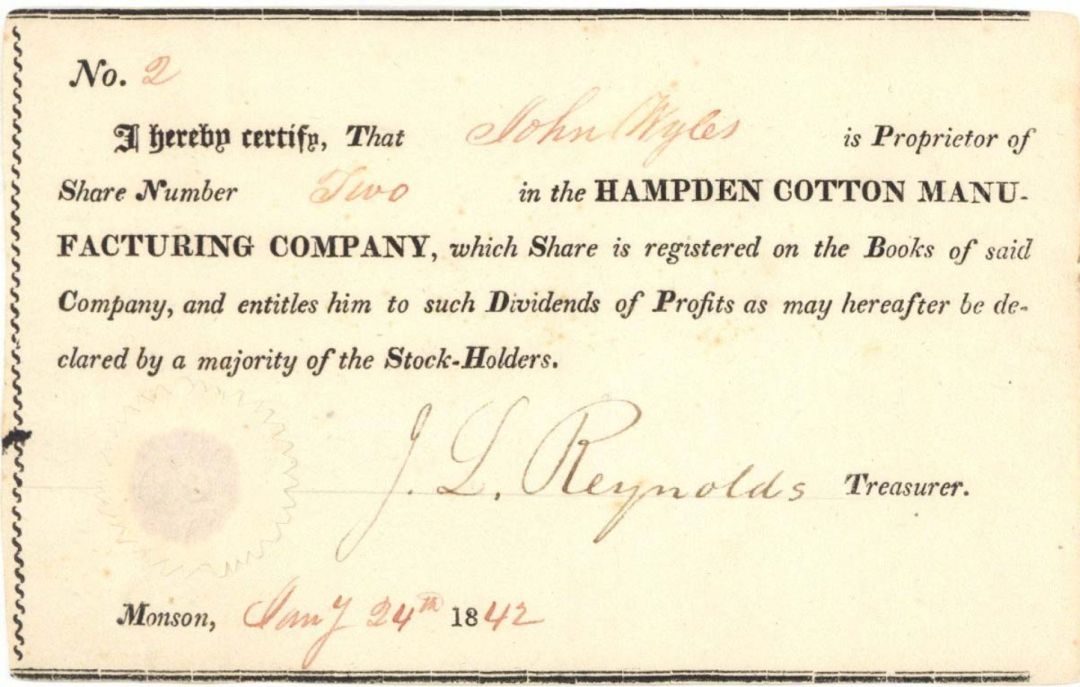 No. 2
I hereby certify, That John Wyles is Proprietor of
Share Number Two in the HAMPDEN COTTON MANU-
FACTURING COMPANY, which Share is registered on the Books of said
Company, and entitles him to such Dividends of Profits as may hereafter be de-
clared by a majority of the Stock-Holders.
J. L. Reynolds Treasurer.
Monson, Jany 24th 1842